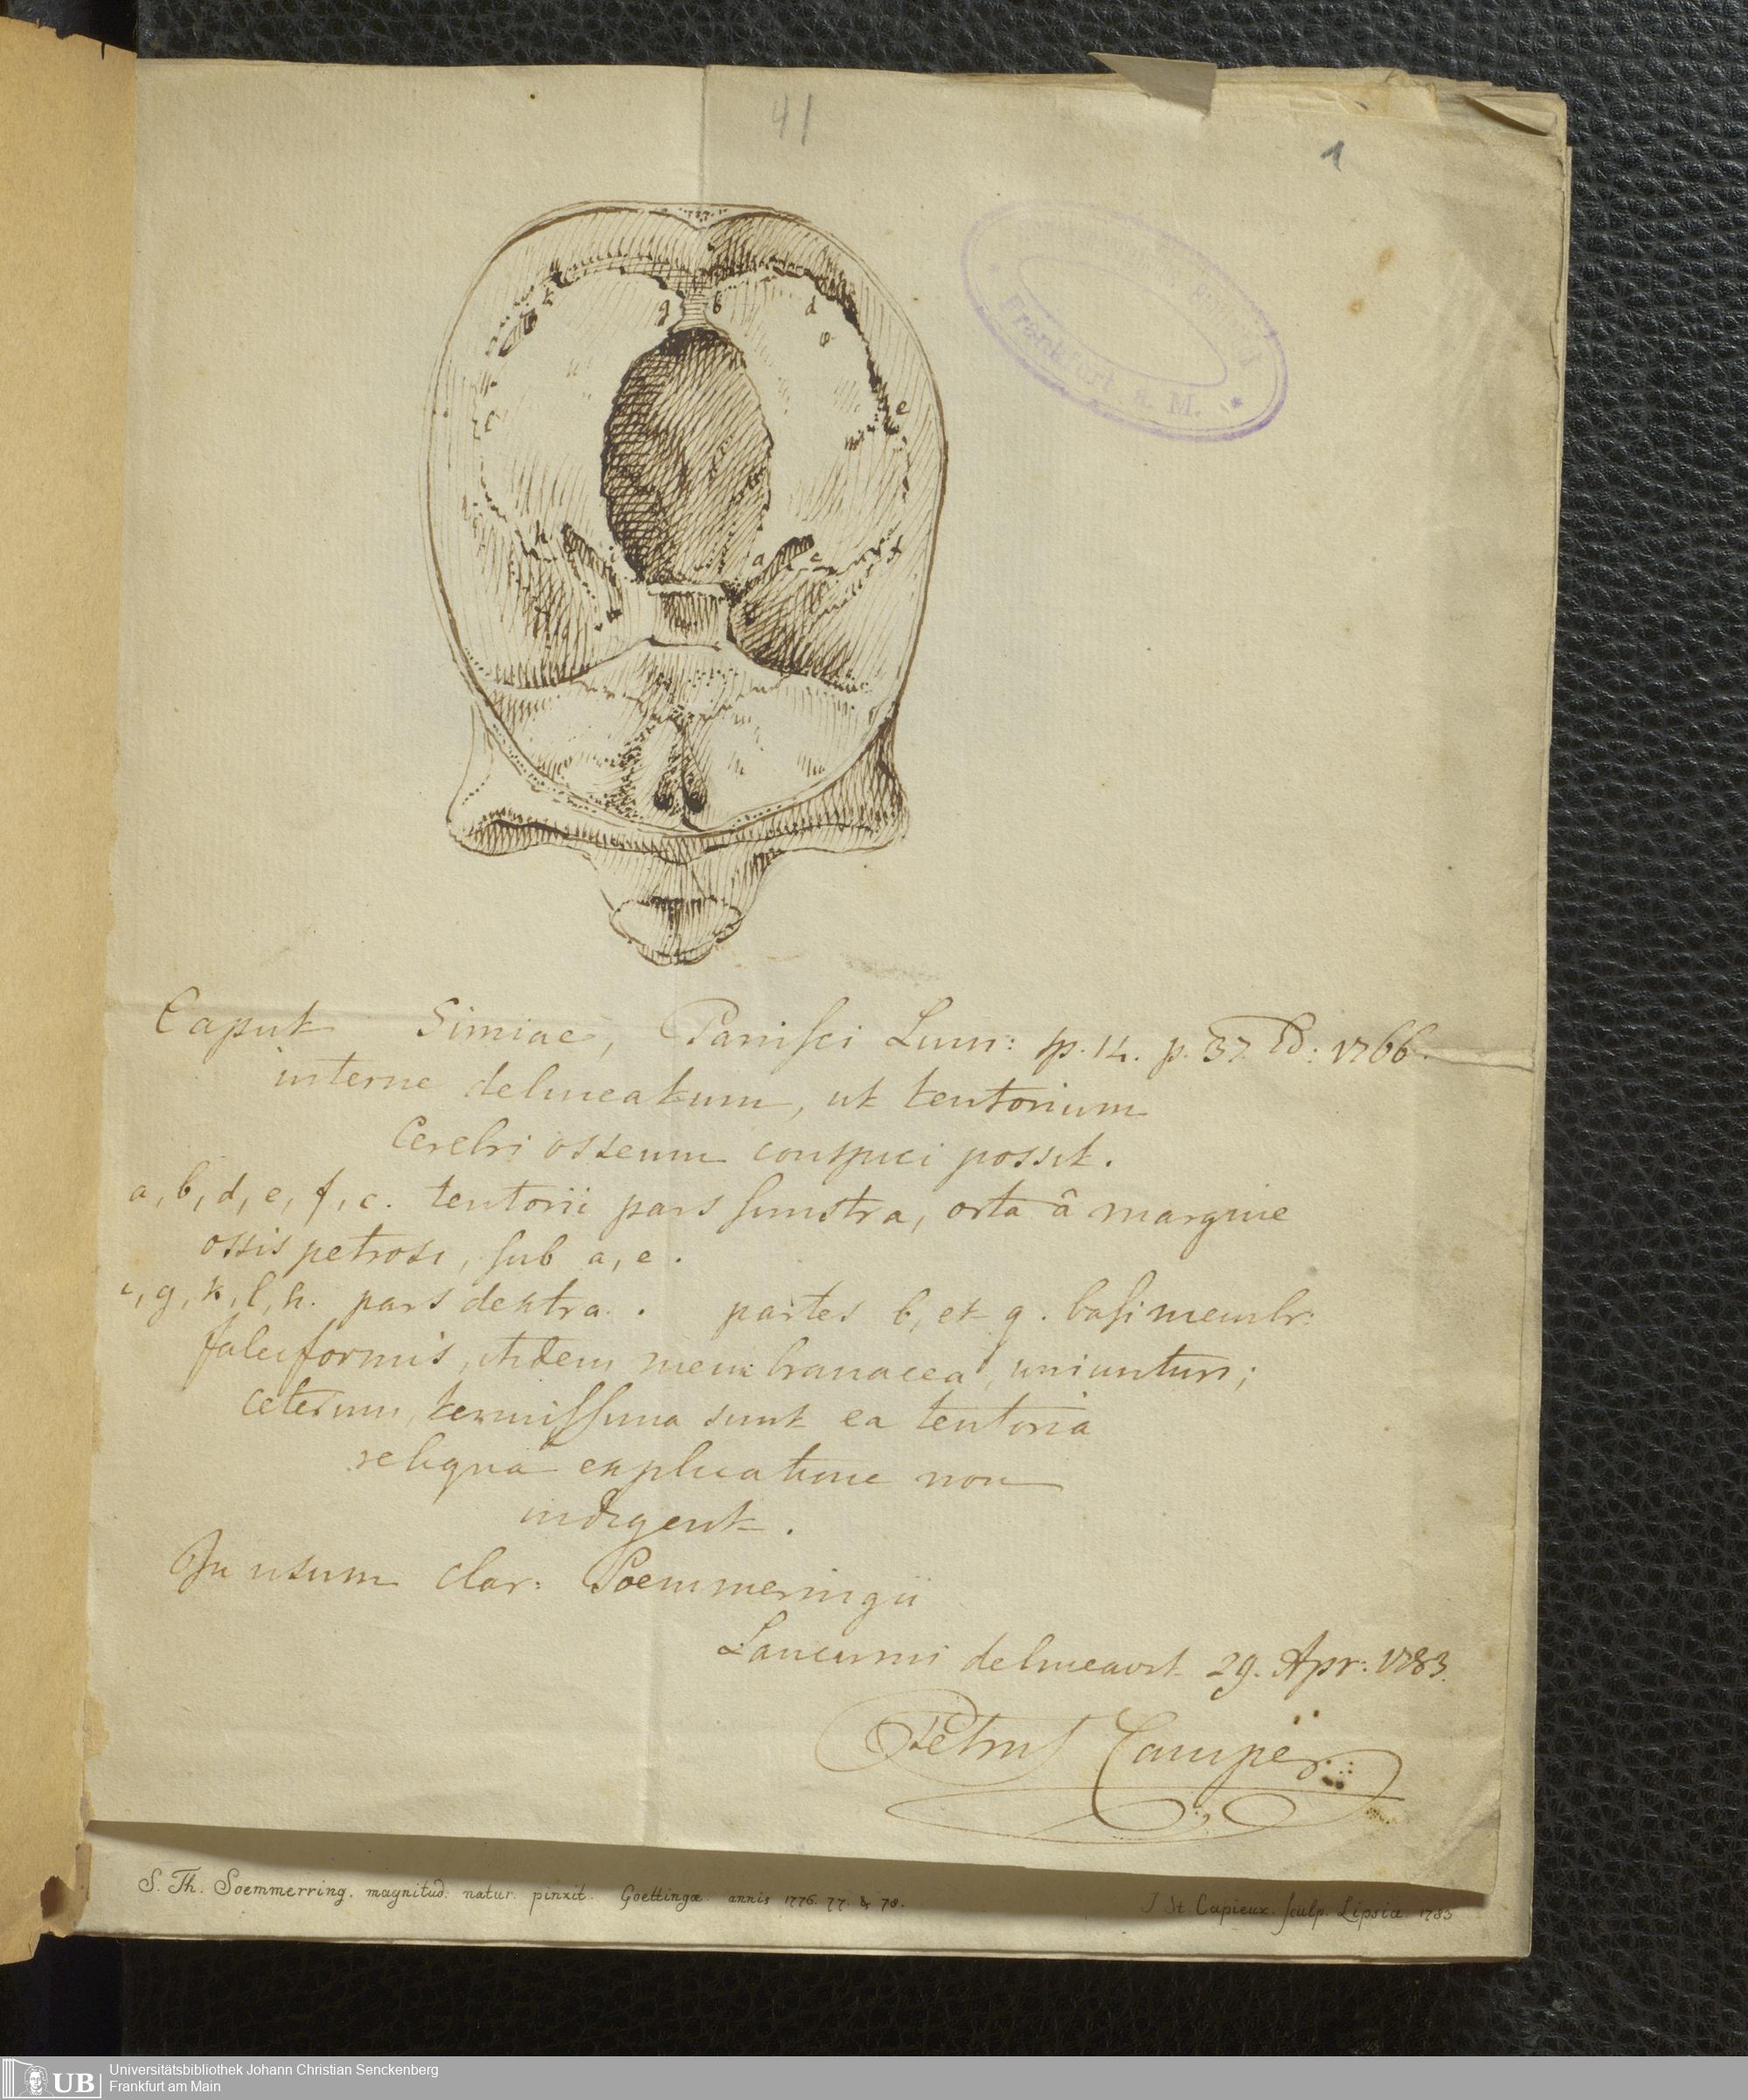 41
1
Frankfurt a. M.
g b d
e
h a c f
Caput Simiae, Panisci Linn: sp. 14. p. 37. Ed: 1766.
interne delineatum, ut tentorium
Cerebri osseum conspici possit.
a, b, d, e, f, c. tentorii pars sinistra, orta â margine
ossis petrosi, sub a, e.
i, g, k, l, h. pars dextra. partes b, et g. basi membr:
falciformis, itidem membranacea, uniuntur;
ceterum, tenuissima sunt ea tentoria
reliqua explicatione non
indigent.
In usum clar: Soemmeringii
Lancumi delineavit 29. Apr: 1783.
Petrus Camper
S. Th. Soemmerring. magnitud: natur. pinxit. Goettingæ. annis 1776. 77. & 78.
J St. Capieux. sculp. Lipsiæ. 1783
UB
Universitätsbibliothek Johann Christian Senckenberg
Frankfurt am Main